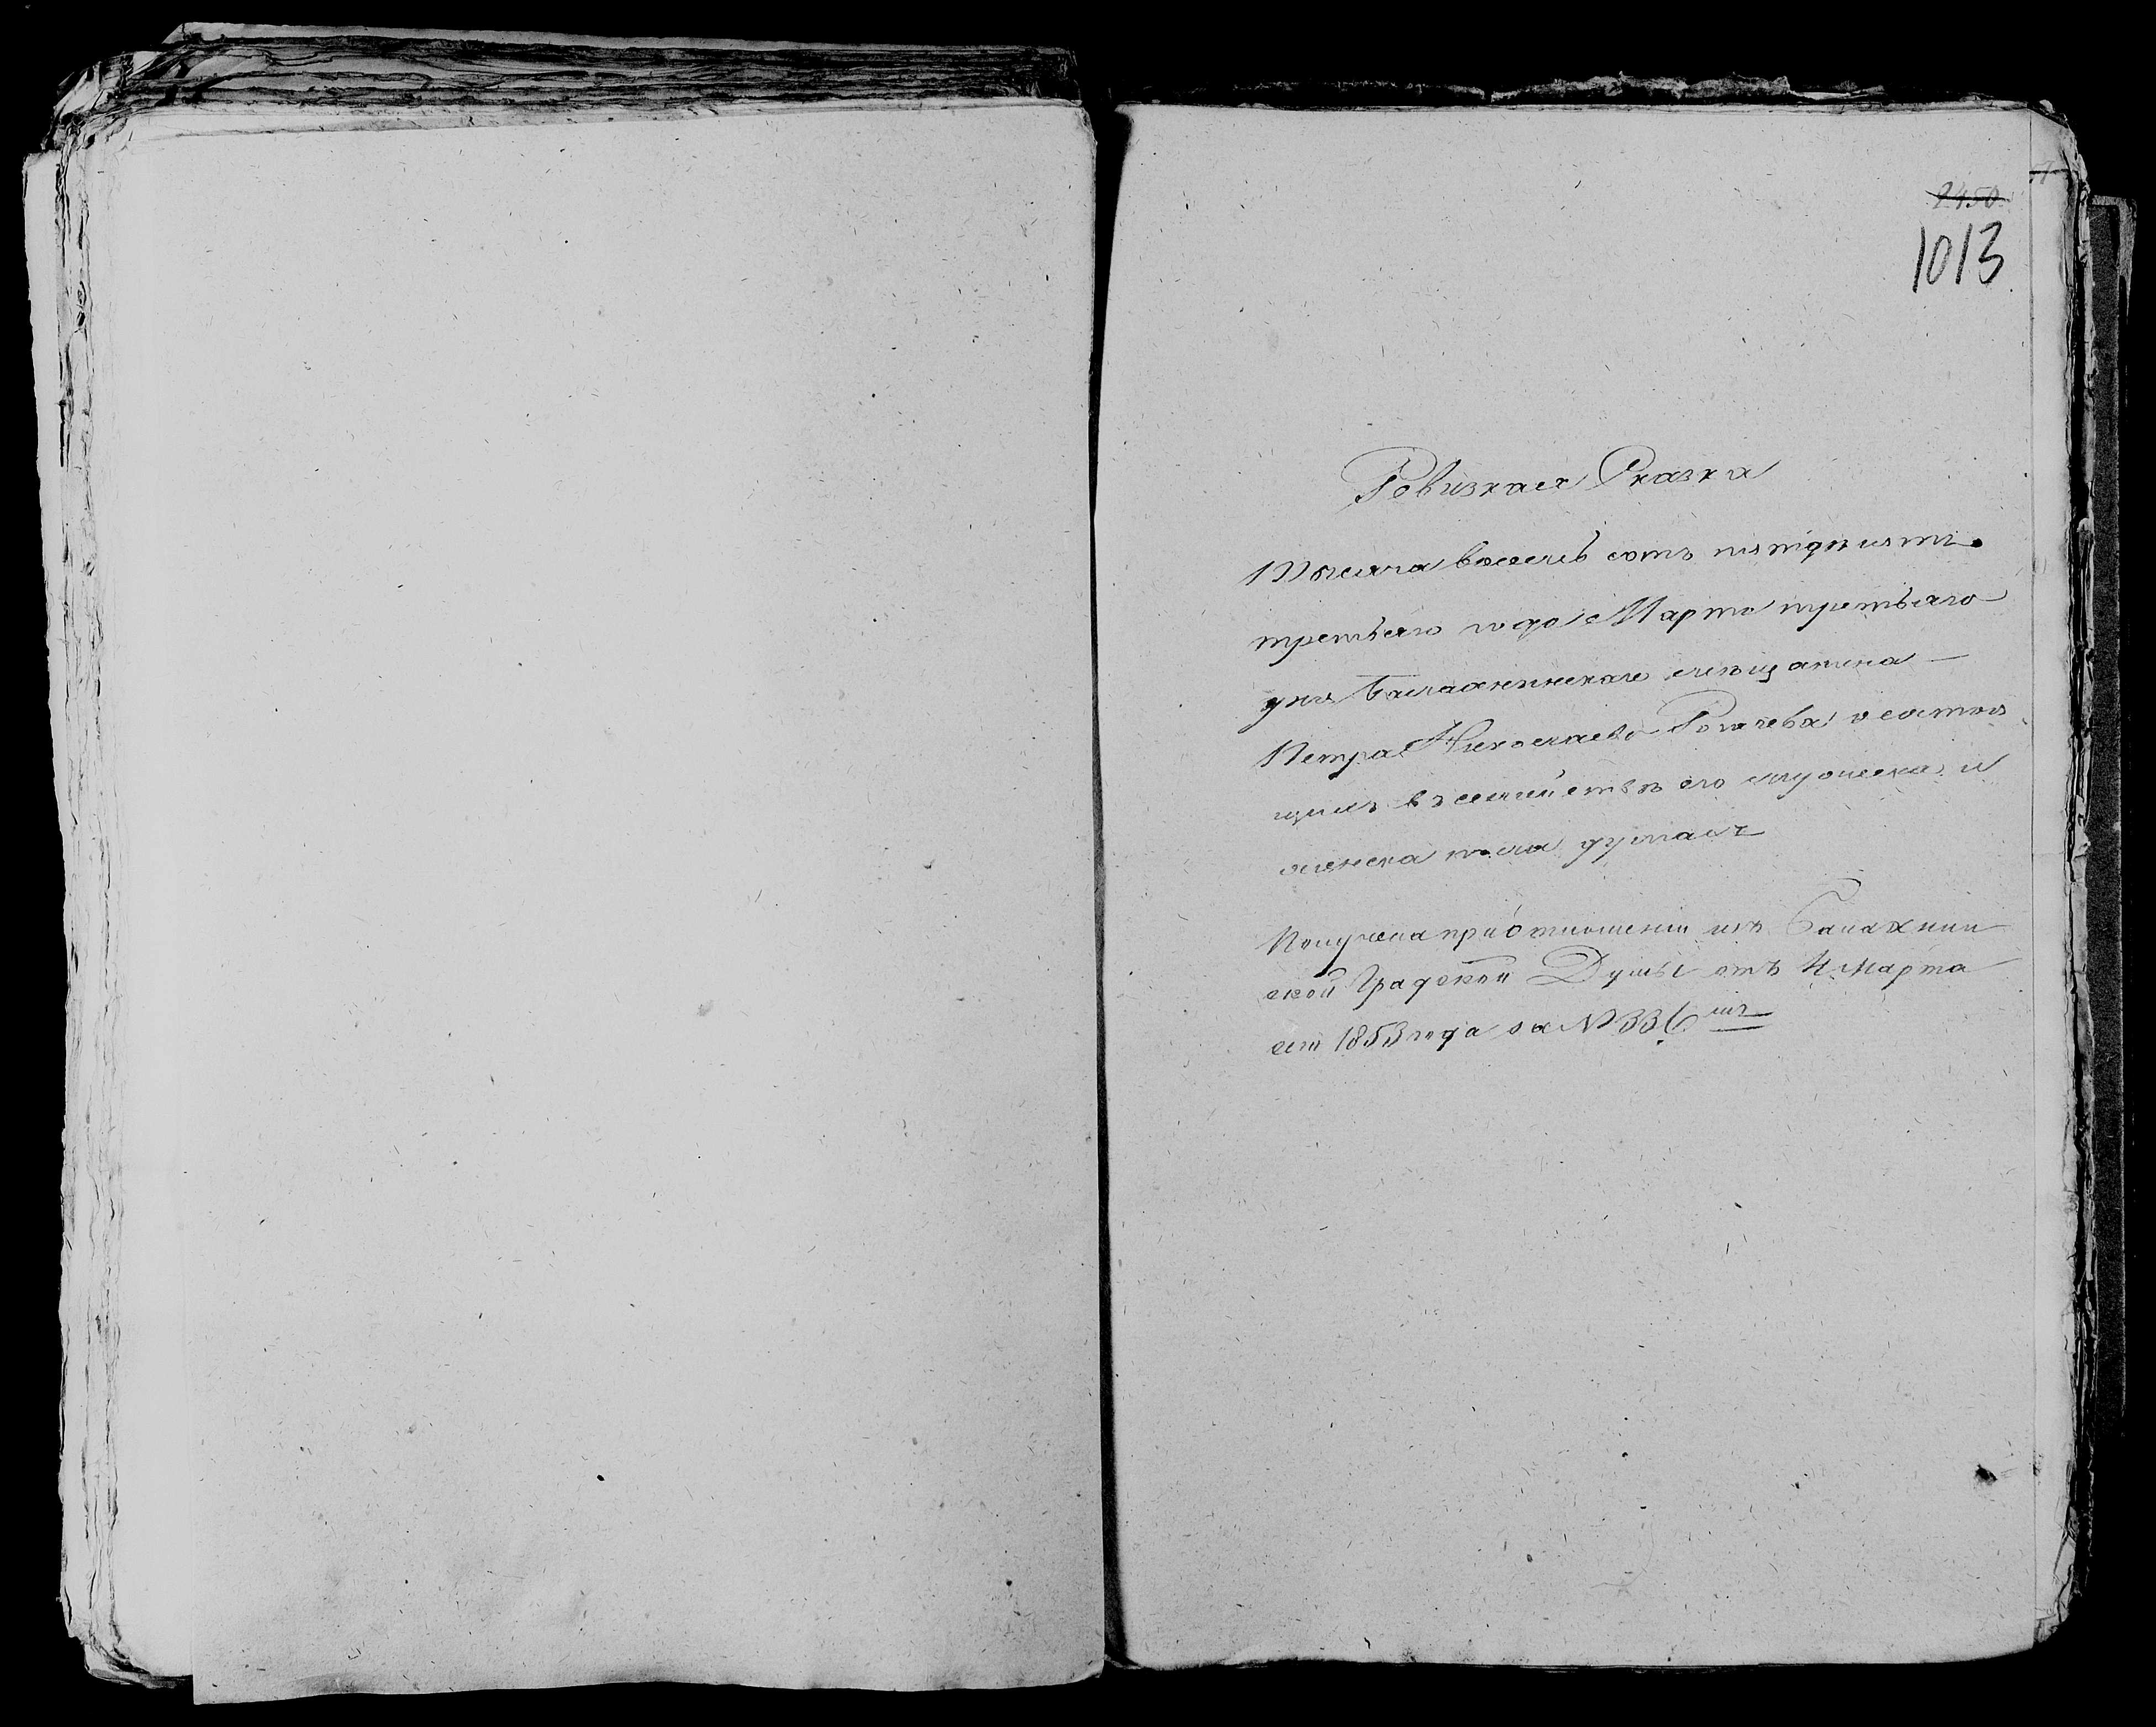 2450
1013
Ревизкая Сказка
Тысяча восемь сотъ пятдесятъ
третьяго года Марта третьяго
дня Балахнинскаго мѣщанина
Петра Николаева Рогачева о состоя
щихъ въ семействѣ его мужеска и
женска пола душахъ
Получена при отношеніи изъ Балахнин
ской Градской Думы отъ 4 Марта
сего 1853 года за № 336 мъ